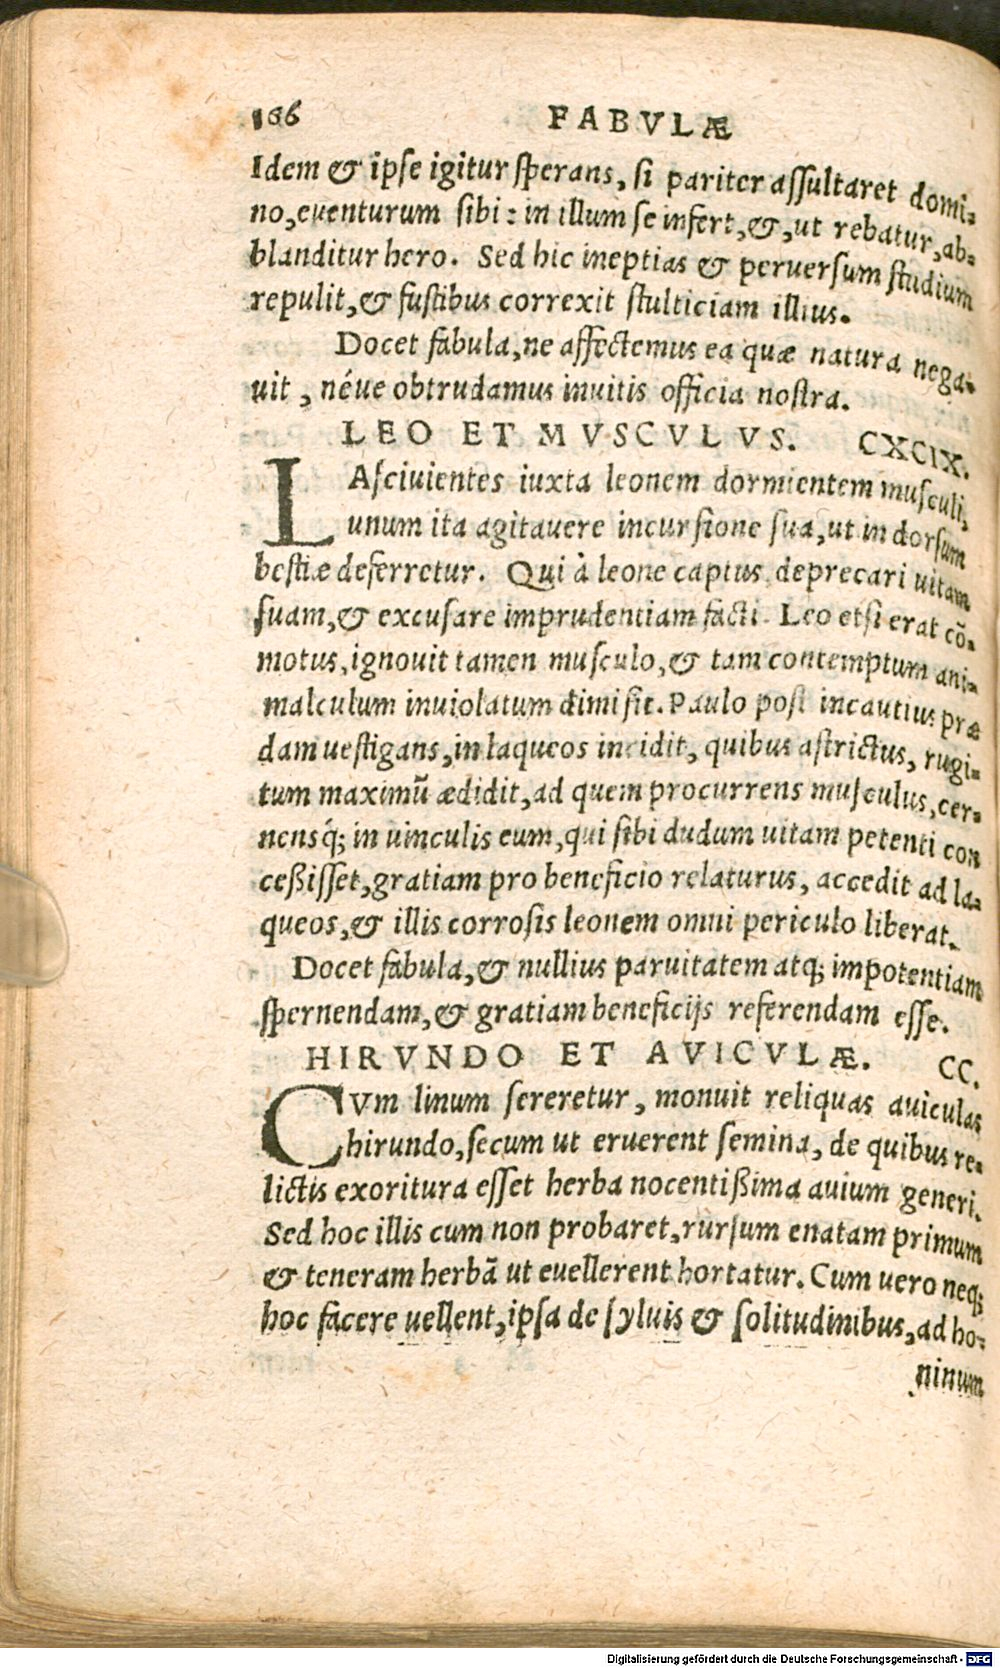 166 FABVLÆ
Idem & ipse igitur sperans, si pariter assultaret domi-
no, euenturum sibi: in illum se infert, &, ut rebatur, ab-
blanditur hero. Sed hic ineptias & peruersum studium
repulit, & fustibus correxit stulticiam illius.
Docet fabula, ne affectemus ea quæ natura nega-
uit, néue obtrudamus inuitis officia nostra.
LEO ET MVSCVLVS. CXCIX.
LAsciuientes iuxta leonem dormientem musculi,
unum ita agitauere incursione sua, ut in dorsum
bestiæ deferretur. Qui à leone captus deprecari uitam
suam, & excusare imprudentiam facti. Leo etsi erat cō-
motus, ignouit tamen musculo, & tam contemptum ani-
malculum inuiolatum dimisit. Paulo post incautius præ
dam uestigans, in laqueos incidit, quibus astrictus, rugi-
tum maximū ædidit, ad quem procurrens musculus, cer-
nensq́; in uinculis eum, qui sibi dudum uitam petenti con
ceßisset, gratiam pro beneficio relaturus, accedit ad la-
queos, & illis corrosis leonem omni periculo liberat.
Docet fabula, & nullius paruitatem atq; impotentiam
spernendam, & gratiam beneficijs referendam esse.
HIRVNDO ET AVICVLÆ. CC.
CVm linum sereretur, monuit reliquas auiculas
hirundo, secum ut eruerent semina, de quibus re-
lictis exoritura esset herba nocentißima auium generi.
Sed hoc illis cum non probaret, rursum enatam primum
& teneram herbā ut euellerent hortatur. Cum uero neq;
hoc facere uellent, ipsa de syluis & solitudinibus, ad ho-
ninum
Digitalisierung gefördert durch die Deutsche Forschungsgemeinschaft - DFG